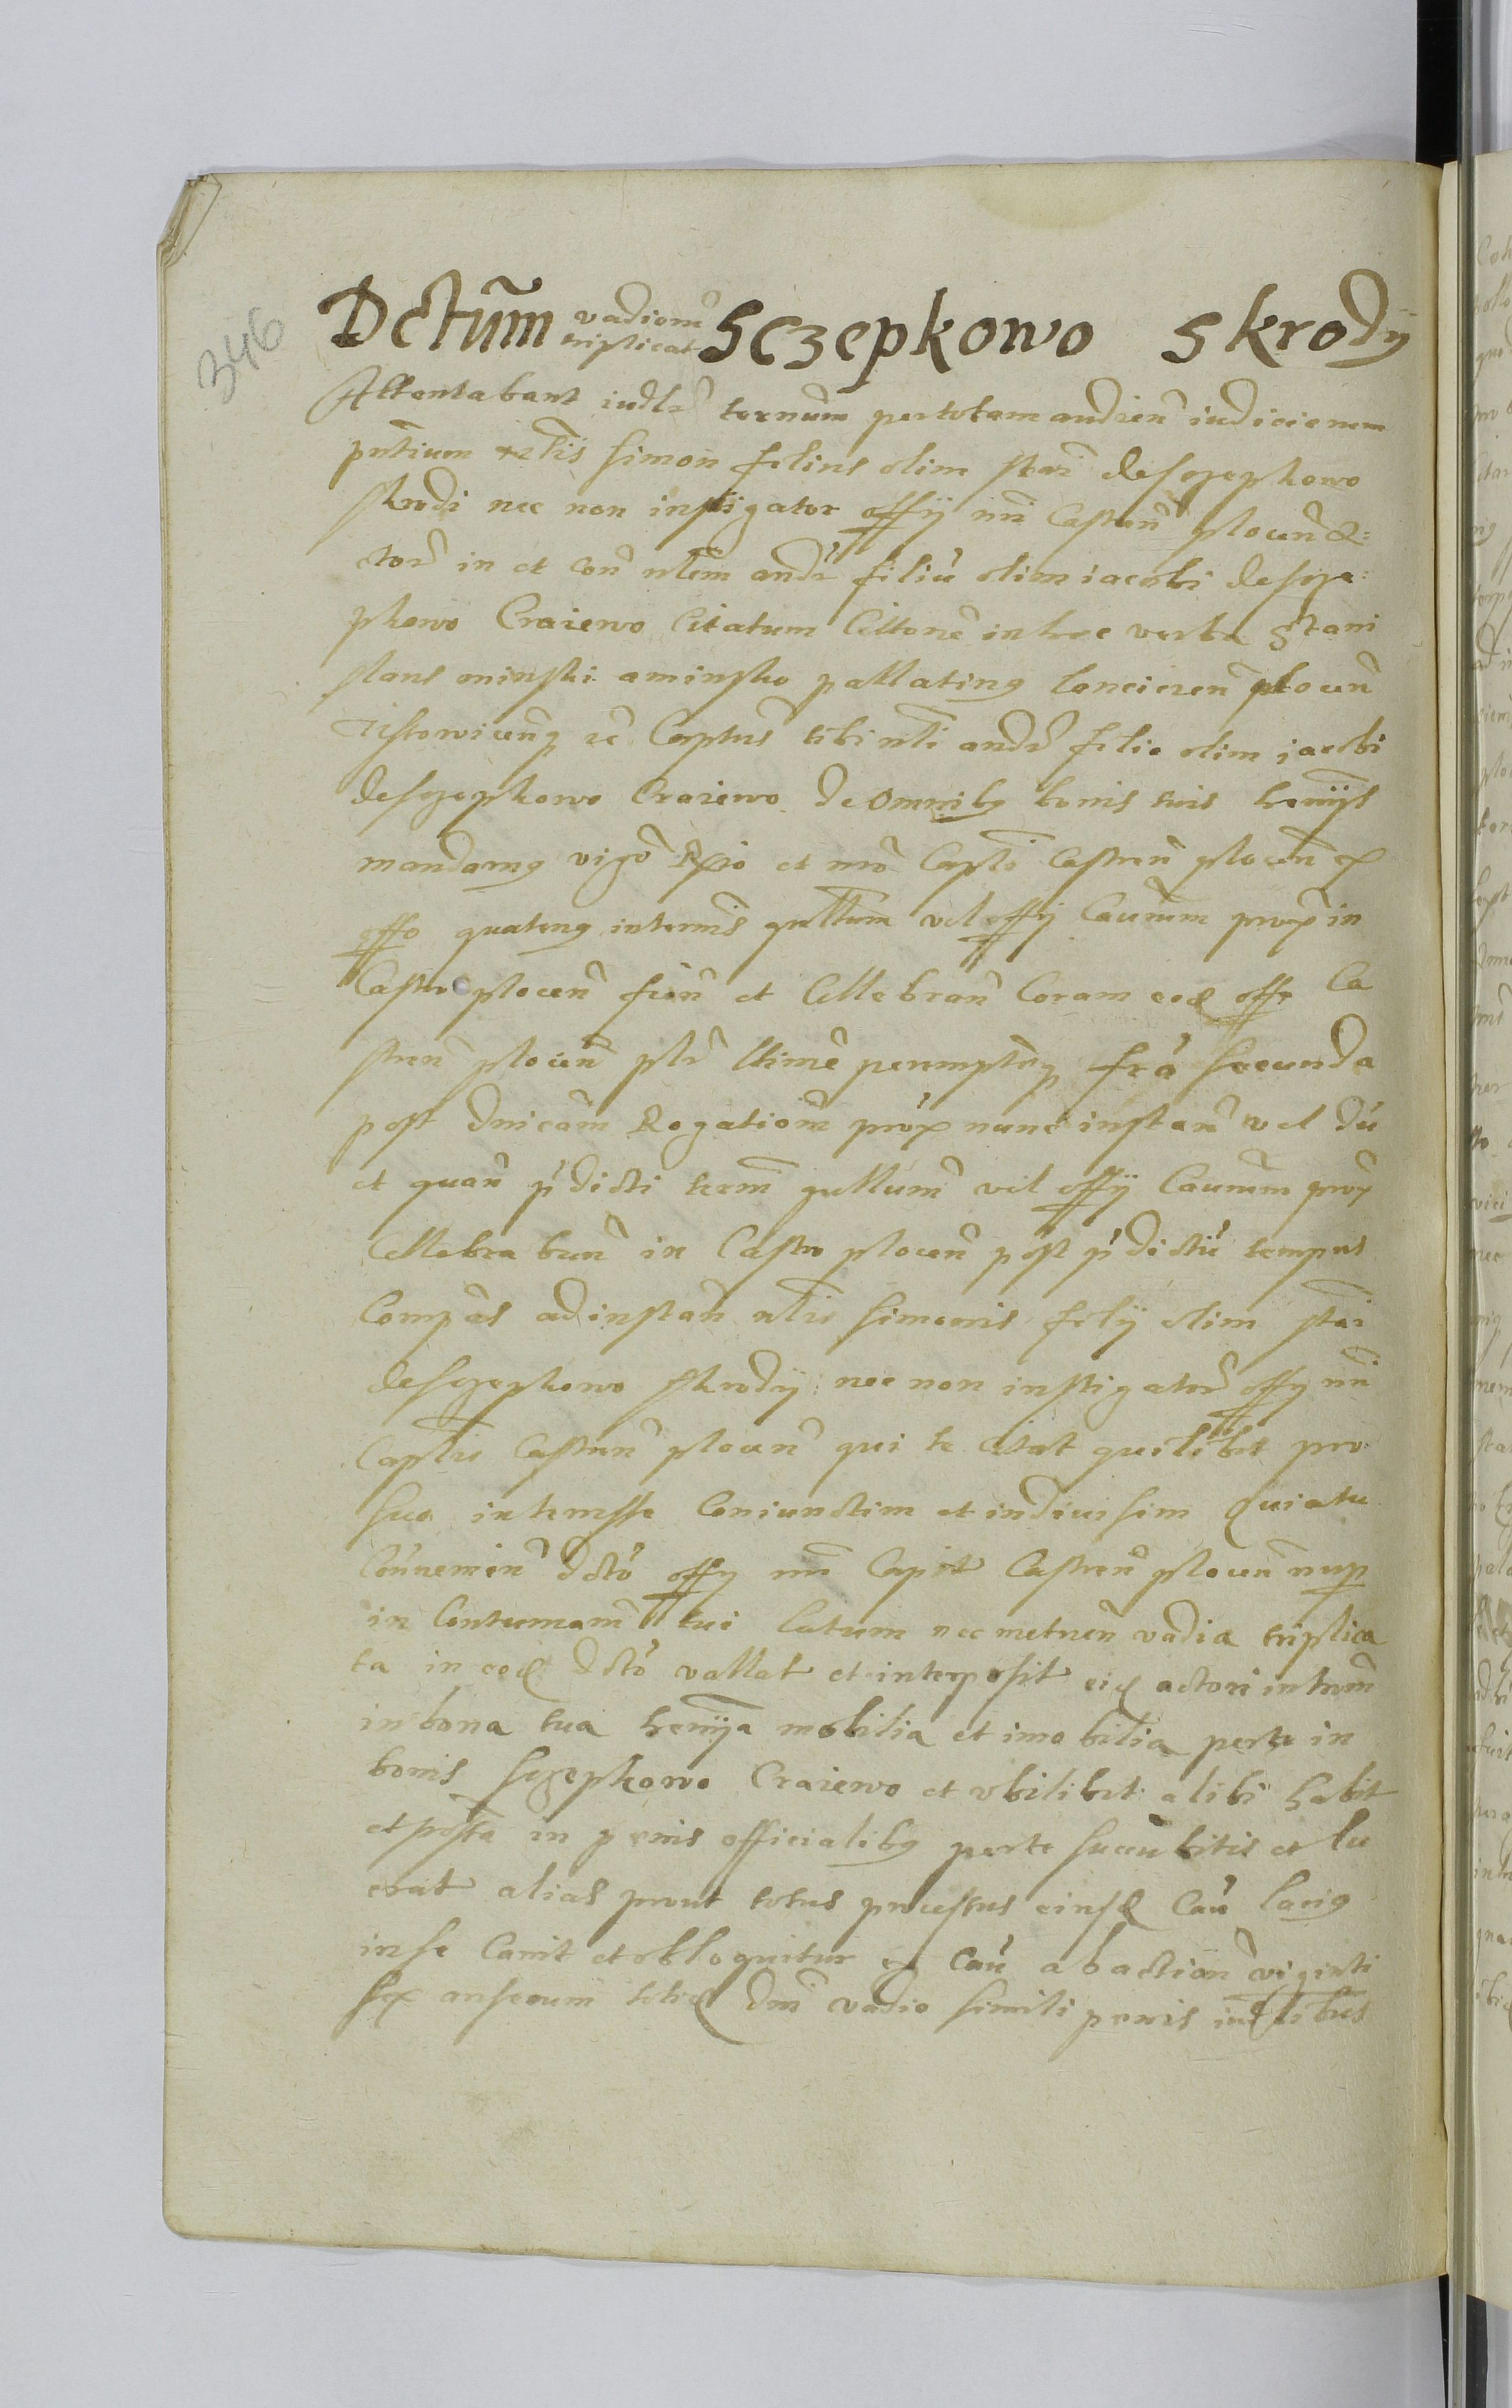 346
Dctum̃ vadiom̃ triplicat Sczepkowo Skrodÿ
Attentabant iudlr̃ ternum pertotam audien̄ iudicionem
pn̄tium nblis Simon filius olim stai de sczepkowo
skrodi nec non instigator offÿ nr̄i Castren̄ plocen̄ &:
ctor̄ in et con̄ nblem andr̄ filiū olim iacobi de scze:
pkowo Craiewo Citatum Cittone in hec verba Stani
slaus minski a minsko pallating lancicien̄ plocen̄
Capt̄us tibi nbli andr̄ filio olim iacobi
de sczepkowo Craiewo de omnibq bonis tuis
mandamq et Castren̄ plocen̄ ex
offo quatenq in termis qullum vel offÿ Caurum prox in
Castro plocen̄ fien̄ et Cellebran̄ Coram eod offo Ca
stren̄ plocen̄ peremptq fra secunda
post dnicam Rogationū prox nunc instan̄ vel dū
et quan̄ p̄dicti termi qullum vel offÿ Caurum prox
Cellebrabun̄ in Castro plocen̄ post p̄dictū tempus
Compās ad instan̄ nblis Simonis filÿ olim stai
de sczepkowo skrodÿ nec non instigatoris offÿ nr̄i
Captlis Castren̄ plocen̄ qui te citat quilibet pro
suo interesse Coniunctim et indiuisim Quia tu
dcto offÿ nr̄i Capit Castren̄ plocen̄ nup
in Contumam̄ tui latum nec metuen̄ vadia triplica
ta in eod dcto vallat et interposit eid actori intrm
in bona tua mobilia et imobilia perte in
bonis sczepkowo Craiewo et vbilibet alibi habit
et possa in penis officialibq perte succubitis et lu
crat alias prout totus processus eiusd Cau lacig
in se Canit et obloquitur ex Cau abaction̄ viginti
sex anserum totid dmi vadio simili penis iudlibus